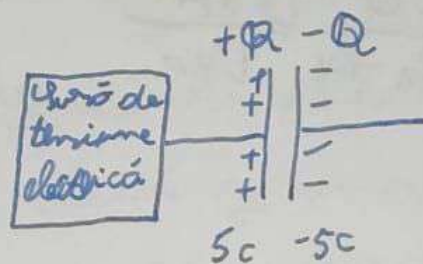 +Q -Q
Sursă de
tensiune
electrică
5c -5c